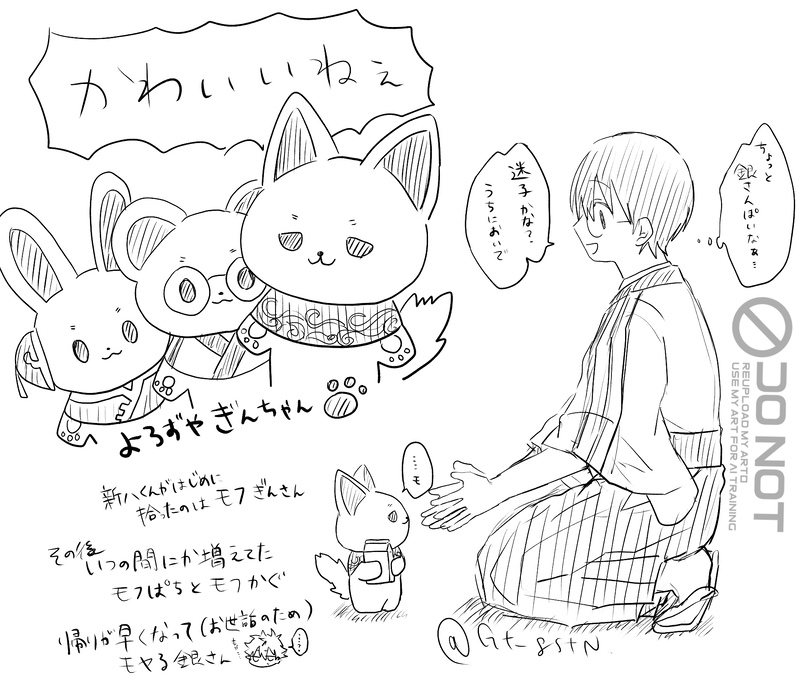 かわいいねぇ
ちょっと
銀さんぽいなぁ…
迷子かな?
うちにおいで
よろずやぎんちゃん
……モ
新八くんがはじめに
拾ったのはモフぎんさん
その後
いつの間にか増えてた
モフぱちとモフかぐ
帰りが早くなって(お世話のため)
モヤる銀さん
……
@Gt-gstN
DO NOT
REUPLOAD MY ART OR
USE MY ART FOR AI TRAINING